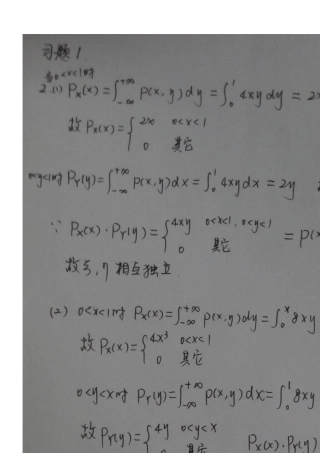 习题1.
当0<x<1时
2.(1) Pₓ(x)=∫_{-∞}^{+∞} p(x,y)dy=∫_0^1 4xy dy = 2x
故 Pₓ(x)={ 2x 0<x<1
0 其它
0<y<1时 P_Y(y)=∫_{-∞}^{+∞} p(x,y)dx=∫_0^1 4xy dx = 2y
∵ Pₓ(x)·P_Y(y)={ 4xy 0<x<1, 0<y<1 = p(x
0 其它
故ξ,η相互独立.
(2) 0<x<1时 Pₓ(x)=∫_{-∞}^{+∞} p(x,y)dy=∫_0^x 8xy
故 Pₓ(x)={ 4x³ 0<x<1
0 其它
0<y<x时 P_Y(y)=∫_{-∞}^{+∞} p(x,y)dx=∫_0^1 8xy
故 P_Y(y)={ 4y 0<y<x Pₓ(x)·P_Y(y)
0 其它